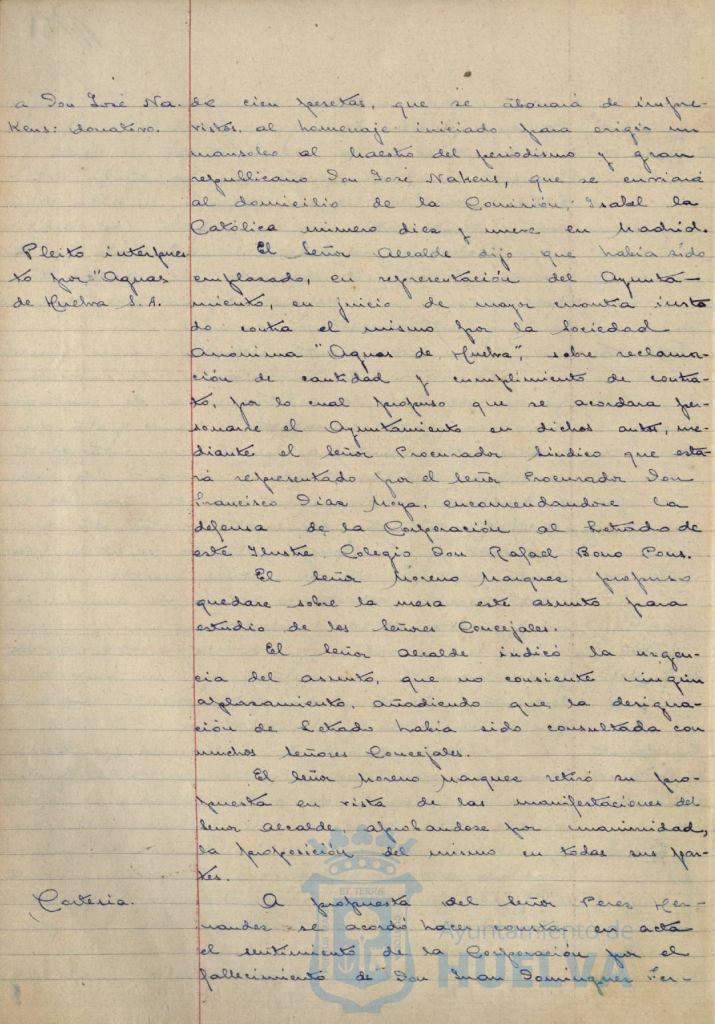 a Don José Na-
kens: donativo.
de cien pesetas, que se abonará de impre-
vistos, al homenaje iniciado para erigir un
mausoleo al maestro del periodismo y gran
republicano Don José Nakens, que se enviará
al domicilio de la Comisión, Isabel la
Católica número diez y nueve en Madrid.
Pleito interpues
to por "Aguas
de Huelva S. A.
El Señor Alcalde dijo que había sido
emplazado, en representación del Ayunta-
miento, en juicio de mayor cuantia insta
do contra el mismo por la Sociedad
Anónima "Aguas de Huelva", sobre reclama-
ción de cantidad y cumplimiento de contra-
to, por lo cual propuso que se acordara per-
sonarse el Ayuntamiento en dichos autos, me-
diante el Señor Procurador Sindico que esta-
rá representado por el Señor Procurador Don
Francisco Diaz Moya, encomendandose la
defensa de la Corporación al Letrado de
este Ilustre Colegio Don Rafael Bono Pons.
El Señor Moreno Marquez propuso
quedase sobre la mesa este asunto para
estudio de los Señores Concejales.
El Señor Alcalde indicó la urgen-
cia del asunto, que no consiente ningún
aplazamiento, añadiendo que la designa-
ción de Letrado había sido consultada con
muchos Señores Concejales.
El Señor Moreno Marquez retiró su pro-
puesta en vista de las manifestaciones del
Señor Alcalde, aprobandose por unanimidad,
la proposición del mismo en todas sus par-
tes.
Cortesia.
A propuesta del Señor Perez Her-
nandez se acordó hacer constar en acta
el sentimiento de la Corporación por el
fallecimiento de Don Juan Dominguez Fer-
Ayuntamiento de
HUELVA